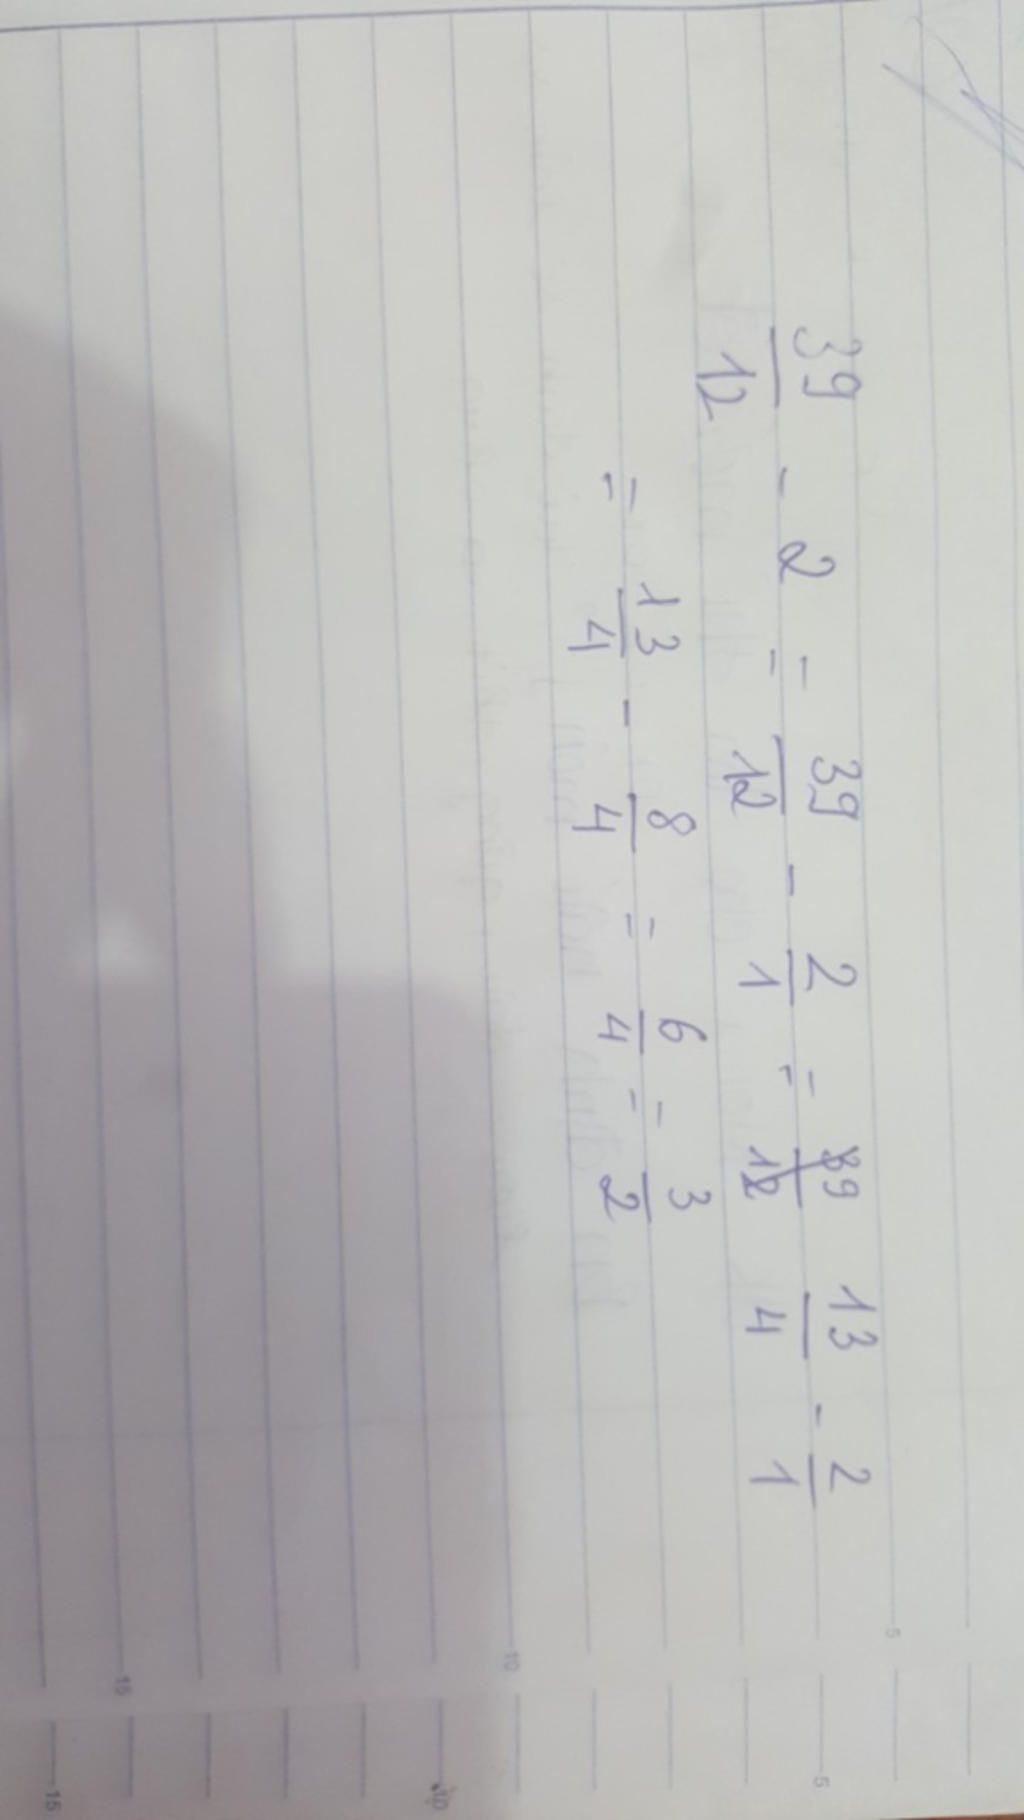 39/12 - 2 = 39/12 - 2/1 = 39/12 13/4 - 2/1
= 13/4 - 8/4 = 6/4 = 3/2
5
10
15
5
10
15